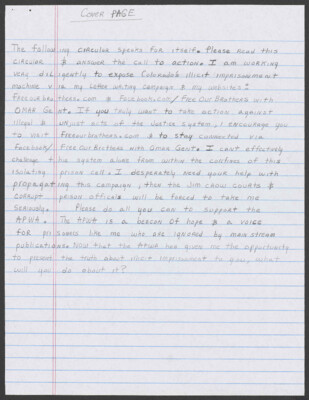 COVER PAGE
The following circular speaks for itself. Please read this
circular & answer the call to action. I am working
very diligently to expose Colorado's illicit imprisonment
machine via my letter writing campaign & my websites:
Freeourbrothers.com & Facebook.com/Free Our Brothers with
Omar Gent. If you truly want to take action against
illegal & unjust acts of the justice system, I encourage you
to visit Freeourbrothers.com & to stay connected via
Facebook/Free Our Brothers with Omar Gent. I can't effectively
challenge this system alone from within the confines of this
isolating prison cell. I desperately need your help with
propagating this campaign, then the Jim Crow courts &
corrupt prison officials will be forced to take me
seriously. Please do all you can to support the
APWA. The APWA is a beacon of hope & a voice
for prisoners like me who are ignored by main stream
publications. Now that the APWA has given me the opportunity
to present the truth about illicit imprisonment to you, what
will you do about it?